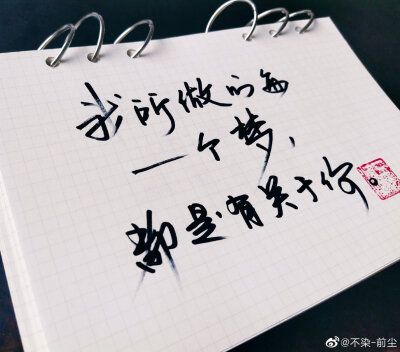 我所做的每
一个梦，
都是有关于你
@不染-前尘